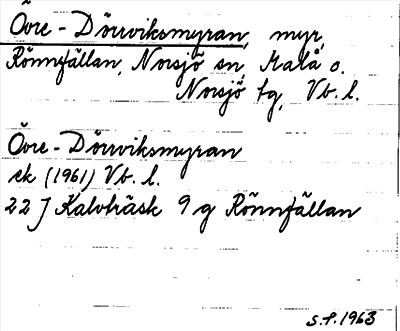 Övre-Dörrviksmyran, myr,
Rönnfällan, Norsjö sn, Malå o.
Norsjö tg, Vb. l.
Övre-Dörrviksmyran
ek (1961) Vb. l.
22 J Kalvträsk 9 g Rönnfällan
S.P. 1963